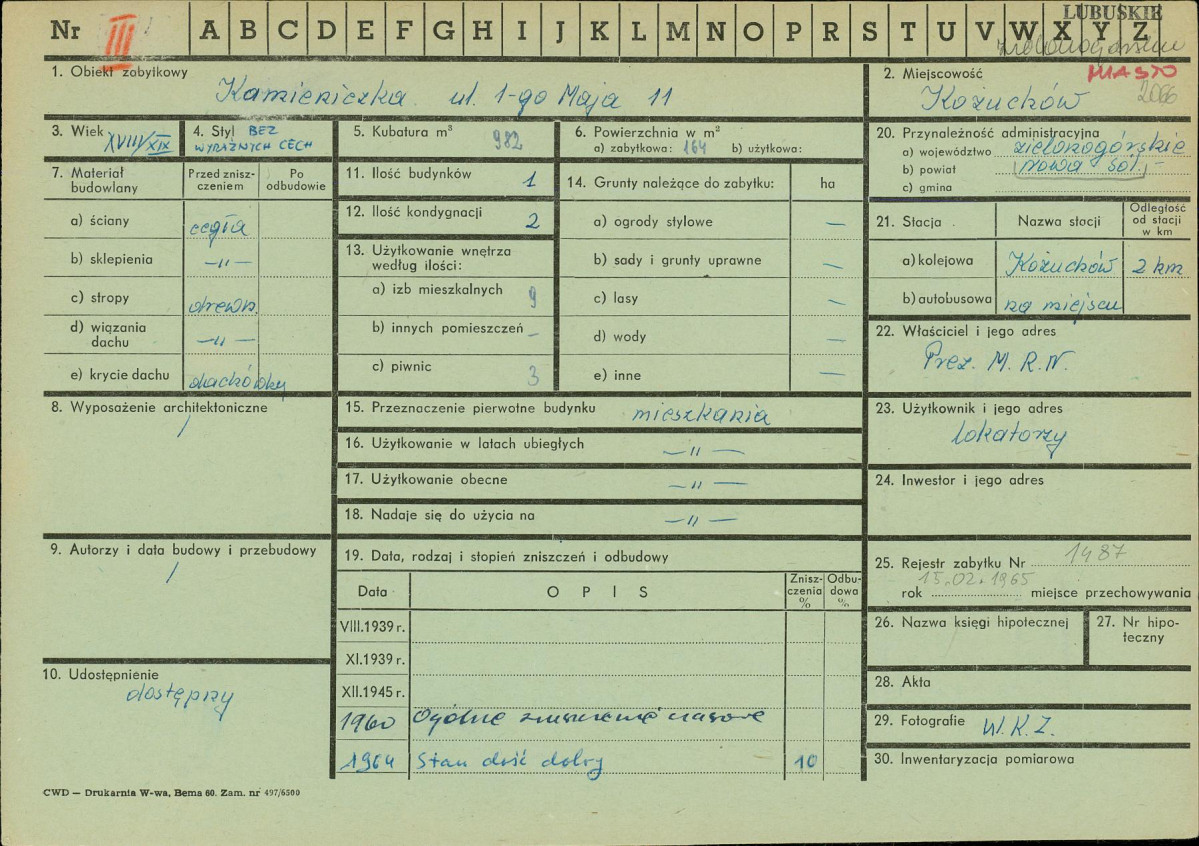 Nr III A B C D E F G H I J K L M N O P R S T U V W X Y Z
LUBUSKIE
MIASTO
2066
1. Obiekt zabytkowy
Kamieniczka ul. 1-go Maja 11
2. Miejscowość
Kożuchów
3. Wiek XVIII/XIX
4. Styl BEZ
WYRAŹNYCH CECH
5. Kubatura m³ 982
6. Powierzchnia w m²
a) zabytkowa: 164 b) użytkowa:
20. Przynależność administracyjna
a) województwo zielonogórskie
b) powiat nowa sól
c) gmina
7. Materiał budowlany
Przed znisz-
czeniem
Po
odbudowie
a) ściany cegła
b) sklepienia —"—
c) stropy drewn.
d) wiązania
dachu —"—
e) krycie dachu dachówky
11. Ilość budynków 1
12. Ilość kondygnacji 2
13. Użytkowanie wnętrza
według ilości:
a) izb mieszkalnych 9
b) innych pomieszczeń –
c) piwnic 3
14. Grunty należące do zabytku: ha
a) ogrody stylowe —
b) sady i grunty uprawne —
c) lasy —
d) wody —
e) inne —
21. Stacja Nazwa stacji
Odległość
od stacji
w km
a) kolejowa Kożuchów 2 km
b) autobusowa na miejscu
22. Właściciel i jego adres
Prez. M. R. N.
8. Wyposażenie architektoniczne
/
15. Przeznaczenie pierwotne budynku mieszkania
16. Użytkowanie w latach ubiegłych —"—
17. Użytkowanie obecne —"—
18. Nadaje się do użycia na —"—
23. Użytkownik i jego adres
lokatorzy
24. Inwestor i jego adres
9. Autorzy i data budowy i przebudowy
/
19. Data, rodzaj i stopień zniszczeń i odbudowy
Data OPIS
Znisz-
czenia
%
Odbu-
dowa
%
VIII.1939 r.
XI.1939 r.
XII.1945 r.
1960 Ogólne zniszczenie czasowe
1964 Stan dość dobry 10
25. Rejestr zabytku Nr 1487
15.02.1965
rok miejsce przechowywania
26. Nazwa księgi hipotecznej
27. Nr hipo-
teczny
10. Udostępnienie
dostępny
28. Akta
29. Fotografie W. K. Z.
30. Inwentaryzacja pomiarowa
CWD — Drukarnia W-wa, Bema 60. Zam. nr 497/6500